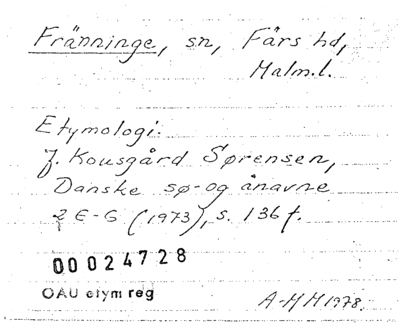 Fränninge, sn, Färs hd,
Malm.l.
Etymologi:
J. Kousgård Sørensen,
Danske sø- og ånavne
2 E-G (1973), s. 136 f.
00024728
OAU etym reg
A-MH 1978.